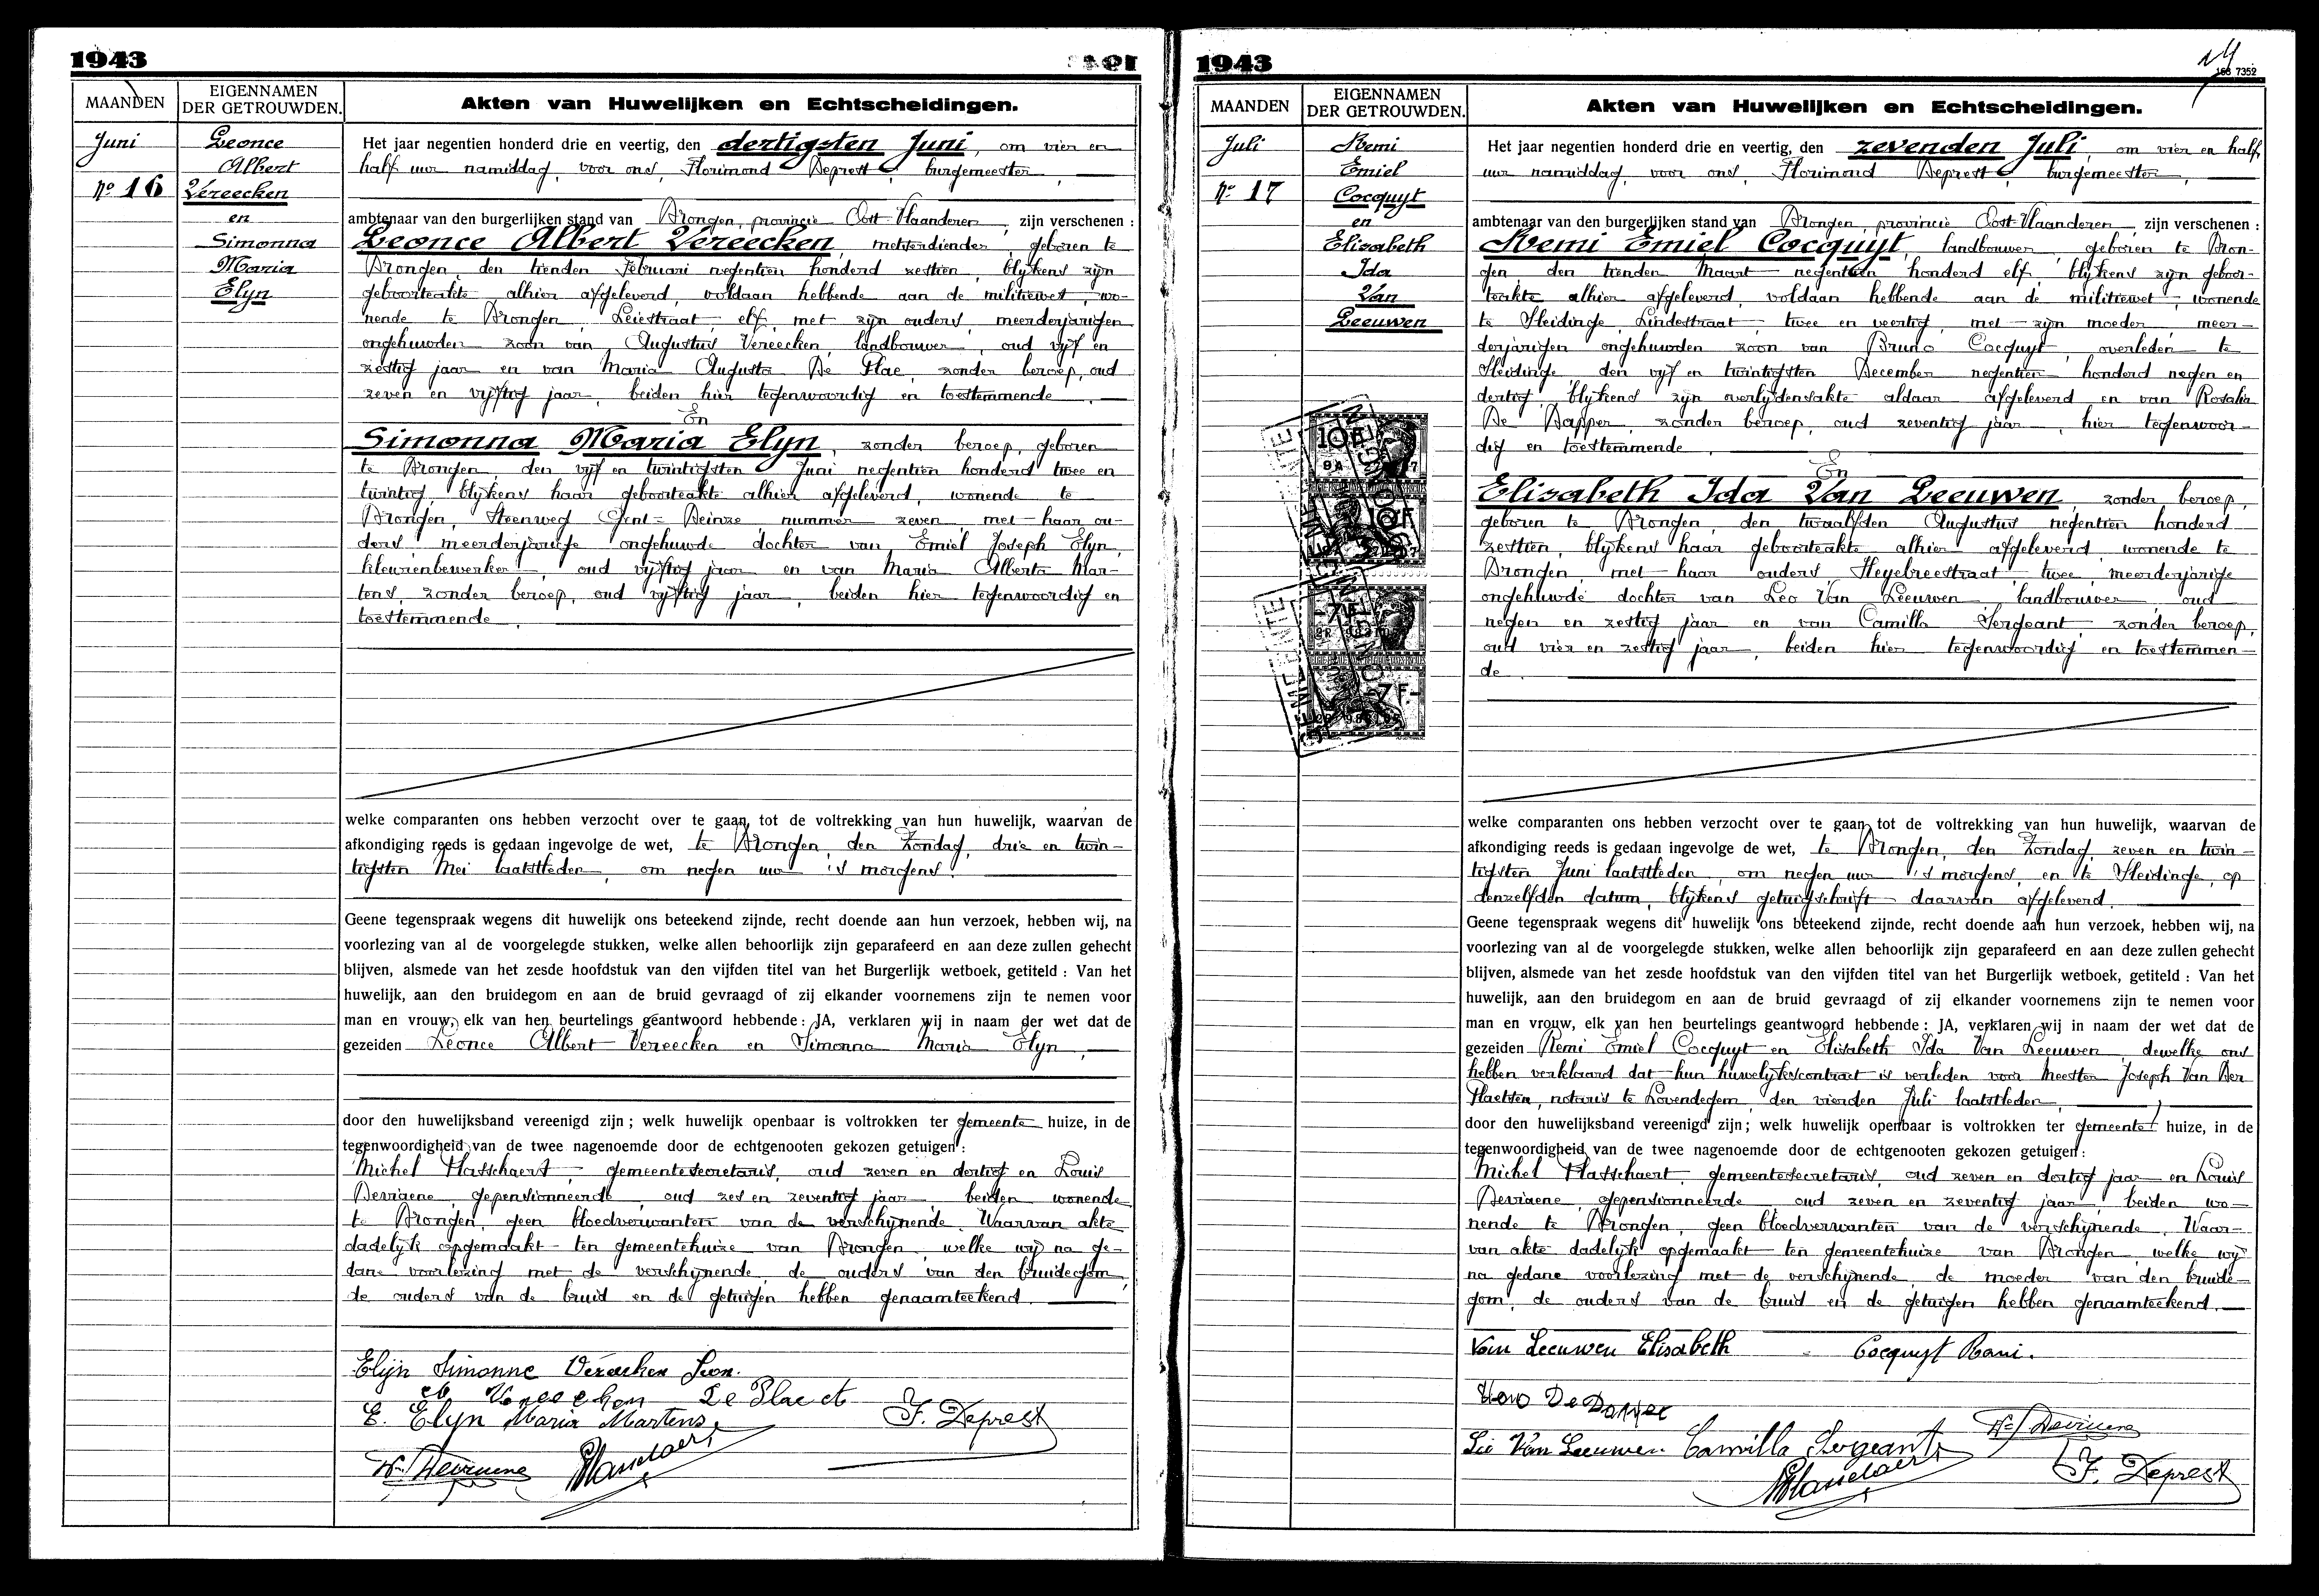 1943
MAANDEN
EIGENNAMEN
DER GETROUWDEN.
Akten van Huwelijken en Echtscheidingen.
Juni
Nº 16
Leonce
Albert
Vereecken
en
Simonna
Maria
Elyn
Het jaar negentien honderd drie en veertig, den dertigsten Juni, om vier en
half uur namiddag, voor ons, Florimond Deprest, burgemeester,
ambtenaar van den burgerlijken stand van Drongen, provincie Oost-Vlaanderen, zijn verschenen :
Leonce Albert Vereecken, melkerdiender, geboren te
Drongen, den tienden Februari negentien honderd zestien, blijkens zijn
geboorteakte alhier afgeleverd, voldaan hebbende aan de militiewet, wo-
nende te Drongen, Leiestraat, elf, met zijn ouders, meerderjarigen
ongehuwden zoon van Augustus Vereecken, landbouwer, oud vijf en
zestig jaar en van Maria Augusta De Plae, zonder beroep, oud
zeven en vijftig jaar, beiden hier tegenwoordig en toestemmende
En
Simonna Maria Elyn, zonder beroep, geboren
te Drongen, den vijf en twintigsten Juni negentien honderd twee en
twintig, blijkens haar geboorteakte alhier afgeleverd, wonende te
Drongen, Steenweg Gent-Deinze, nummer zeven, met haar ou-
ders, meerderjarige ongehuwde dochter van Emiel Joseph Elyn,
kleurenbewerker, oud vijftig jaar en van Maria Alberta Mar-
tens, zonder beroep, oud vijftig jaar, beiden hier tegenwoordig en
toestemmende.
welke comparanten ons hebben verzocht over te gaan tot de voltrekking van hun huwelijk, waarvan de
afkondiging reeds is gedaan ingevolge de wet, te Drongen, den Zondag, drie en twin-
tigsten Mei laatstleden, om negen uur 's morgens.
Geene tegenspraak wegens dit huwelijk ons beteekend zijnde, recht doende aan hun verzoek, hebben wij, na
voorlezing van al de voorgelegde stukken, welke allen behoorlijk zijn geparafeerd en aan deze zullen gehecht
blijven, alsmede van het zesde hoofdstuk van den vijfden titel van het Burgerlijk wetboek, getiteld : Van het
huwelijk, aan den bruidegom en aan de bruid gevraagd of zij elkander voornemens zijn te nemen voor
man en vrouw, elk van hen beurtelings geantwoord hebbende : JA, verklaren wij in naam der wet dat de
gezeiden Leonce Albert Vereecken en Simonna Maria Elyn,
door den huwelijksband vereenigd zijn ; welk huwelijk openbaar is voltrokken ter gemeente huize, in de
tegenwoordigheid van de twee nagenoemde door de echtgenooten gekozen getuigen :
Michel Hasschaert, gemeentesecretaris, oud zeven en dertig en Louis
Devriaene, gepensionneerde, oud zes en zeventig jaar, beiden wonende
te Drongen, geen bloedverwanten van de verschijnende. Waarvan akte
dadelijk opgemaakt ten gemeentehuize van Drongen, welke wij na ge-
dane voorlezing met de verschijnende, de ouders van den bruidegom,
de ouders van de bruid en de getuigen hebben genaamteekend.
Elijn Simonne Vereecken Leon.
Vereecken De Plae
E. Elyn Maria Martens
F. Deprest
1943
14
168 7352
MAANDEN
EIGENNAMEN
DER GETROUWDEN.
Akten van Huwelijken en Echtscheidingen.
Juli
Nº 17
Remi
Emiel
Cocquyt
en
Elisabeth
Ida
Van
Leeuwen
Het jaar negentien honderd drie en veertig, den zevenden Juli, om vier en half
uur namiddag, voor ons, Florimond Deprest, burgemeester,
ambtenaar van den burgerlijken stand van Drongen, provincie Oost-Vlaanderen, zijn verschenen :
Remi Emiel Cocquyt, landbouwer, geboren te Dron-
gen, den tienden Maart negentien honderd elf, blijkens zijn geboor-
teakte alhier afgeleverd, voldaan hebbende aan de militiewet, wonende
te Sleidinge, Lindestraat, twee en veertig, met zijn moeder, meer-
derjarigen ongehuwden zoon van Bruno Cocquyt, overleden te
Sleidinge, den vijf en twintigsten December negentien honderd negen en
dertig, blijkens zijn overlijdensakte aldaar afgeleverd en van Rosalia
De Dapper, zonder beroep, oud zeventig jaar, hier tegenwoor-
dig en toestemmende.
En
Elisabeth Ida Van Leeuwen, zonder beroep,
geboren te Drongen, den twaalfden Augustus negentien honderd
zestien, blijkens haar geboorteakte alhier afgeleverd, wonende te
Drongen, met haar ouders, Heyebreestraat, twee, meerderjarige
ongehuwde dochter van Leo Van Leeuwen, landbouwer, oud
negen en zestig jaar en van Camilla Sergeant, zonder beroep,
oud vier en zestig jaar, beiden hier tegenwoordig en toestemmen-
de.
10 F
10 F
7 F
7 F
GEMEENTE
GEMEENTE
welke comparanten ons hebben verzocht over te gaan tot de voltrekking van hun huwelijk, waarvan de
afkondiging reeds is gedaan ingevolge de wet, te Drongen, den Zondag, zeven en twin-
tigsten Juni laatstleden, om negen uur 's morgens, en te Sleidinge, op
denzelfden datum, blijkens getuigschrift daarvan afgeleverd.
Geene tegenspraak wegens dit huwelijk ons beteekend zijnde, recht doende aan hun verzoek, hebben wij, na
voorlezing van al de voorgelegde stukken, welke allen behoorlijk zijn geparafeerd en aan deze zullen gehecht
blijven, alsmede van het zesde hoofdstuk van den vijfden titel van het Burgerlijk wetboek, getiteld : Van het
huwelijk, aan den bruidegom en aan de bruid gevraagd of zij elkander voornemens zijn te nemen voor
man en vrouw, elk van hen beurtelings geantwoord hebbende : JA, verklaren wij in naam der wet dat de
gezeiden Remi Emiel Cocquyt en Elisabeth Ida Van Leeuwen, dewelke ons
hebben verklaard dat hun huwelijkscontract is verleden voor Meester Joseph Van Der
Plaetsen, notaris te Lovendegem, den vierden Juli laatstleden,
door den huwelijksband vereenigd zijn ; welk huwelijk openbaar is voltrokken ter gemeente huize, in de
tegenwoordigheid van de twee nagenoemde door de echtgenooten gekozen getuigen :
Michel Hasschaert, gemeentesecretaris, oud zeven en dertig jaar en Louis
Devriaene, gepensionneerde, oud zeven en zeventig jaar, beiden wo-
nende te Drongen, geen bloedverwanten van de verschijnende. Waar-
van akte dadelijk opgemaakt ten gemeentehuize van Drongen, welke wij
na gedane voorlezing met de verschijnende, de moeder van den bruide-
gom, de ouders van de bruid en de getuigen hebben genaamteekend.
Van Leeuwen Elisabeth
Cocquyt Remi.
De Dapper
Leo Van Leeuwen. Camilla Sergeant
F. Deprest